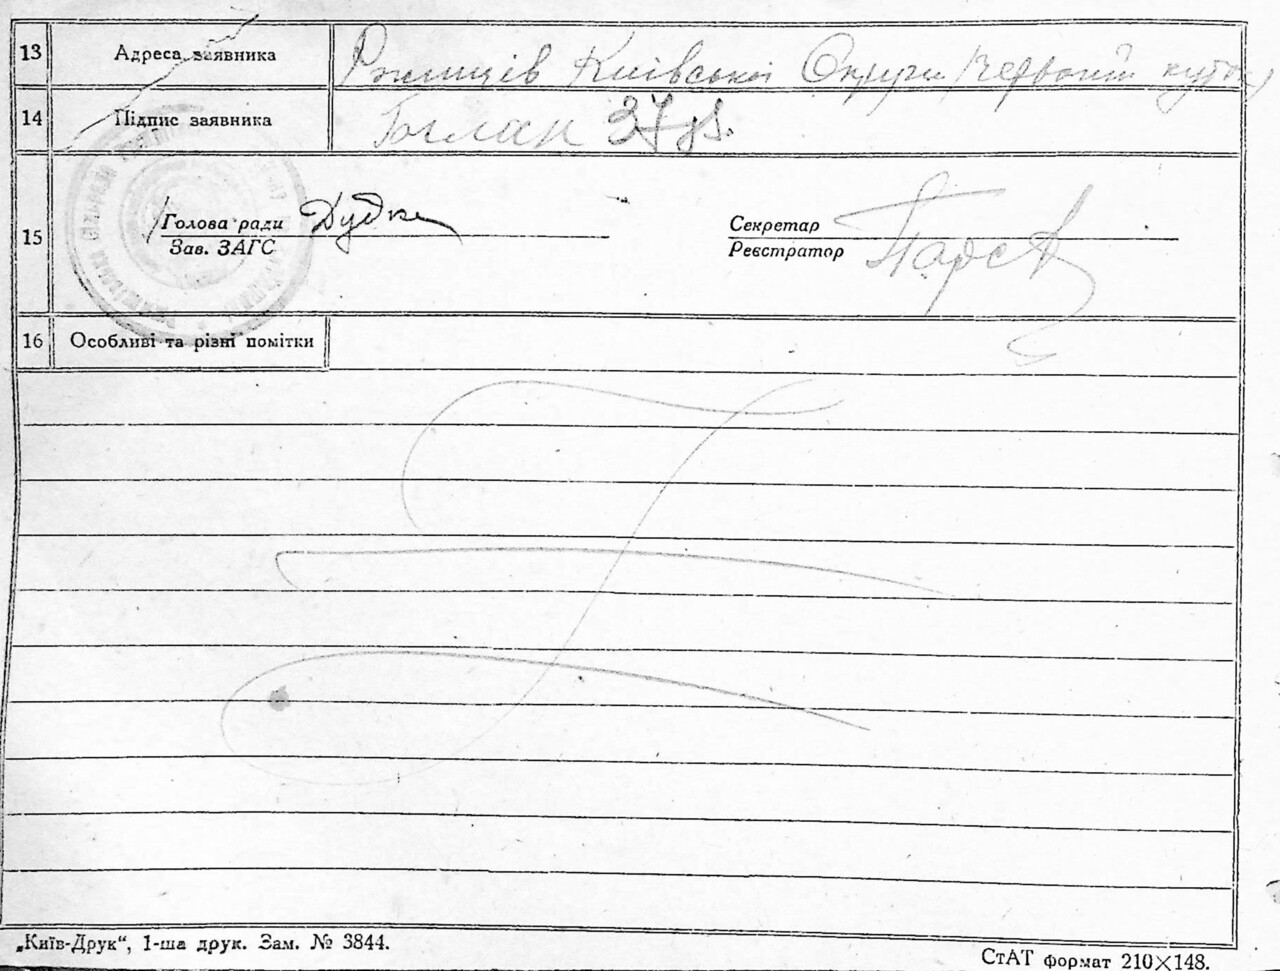 13 Адреса заявника Ржищів Київської Округи Червоний куток
14 Підпис заявника 37
15 Голова ради Дудка Секретар
Зав. ЗАГС Реєстратор
16 Особливі та різні помітки
„Київ-Друк“, 1-ша друк. Зам. № 3844.
СтАТ формат 210×148.